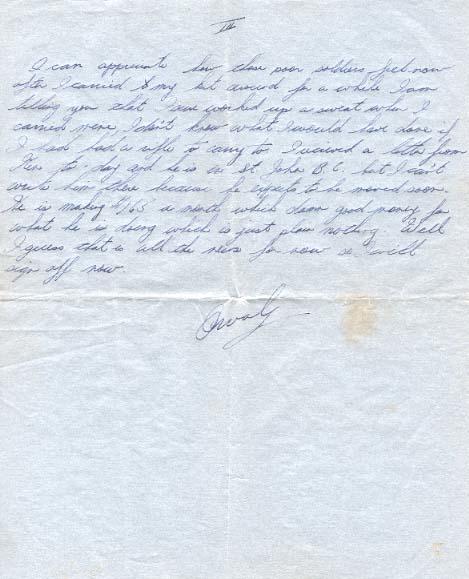 III
I can appreciate how close poor soldiers feel now
after I carried my kit around for a while I am
telling you that I sure worked up a sweat when I
carried mine, I don't know what I would have done if
I had had a rifle to carry to. I received a letter from
Ken to-day and he is in St John B.C. but I can't
write him there because he expects to be moved soon.
He is making $165 a month which damn good money for
what he is doing which is just plain nothing. Well
I guess that is all the news for now so will
sign off now.